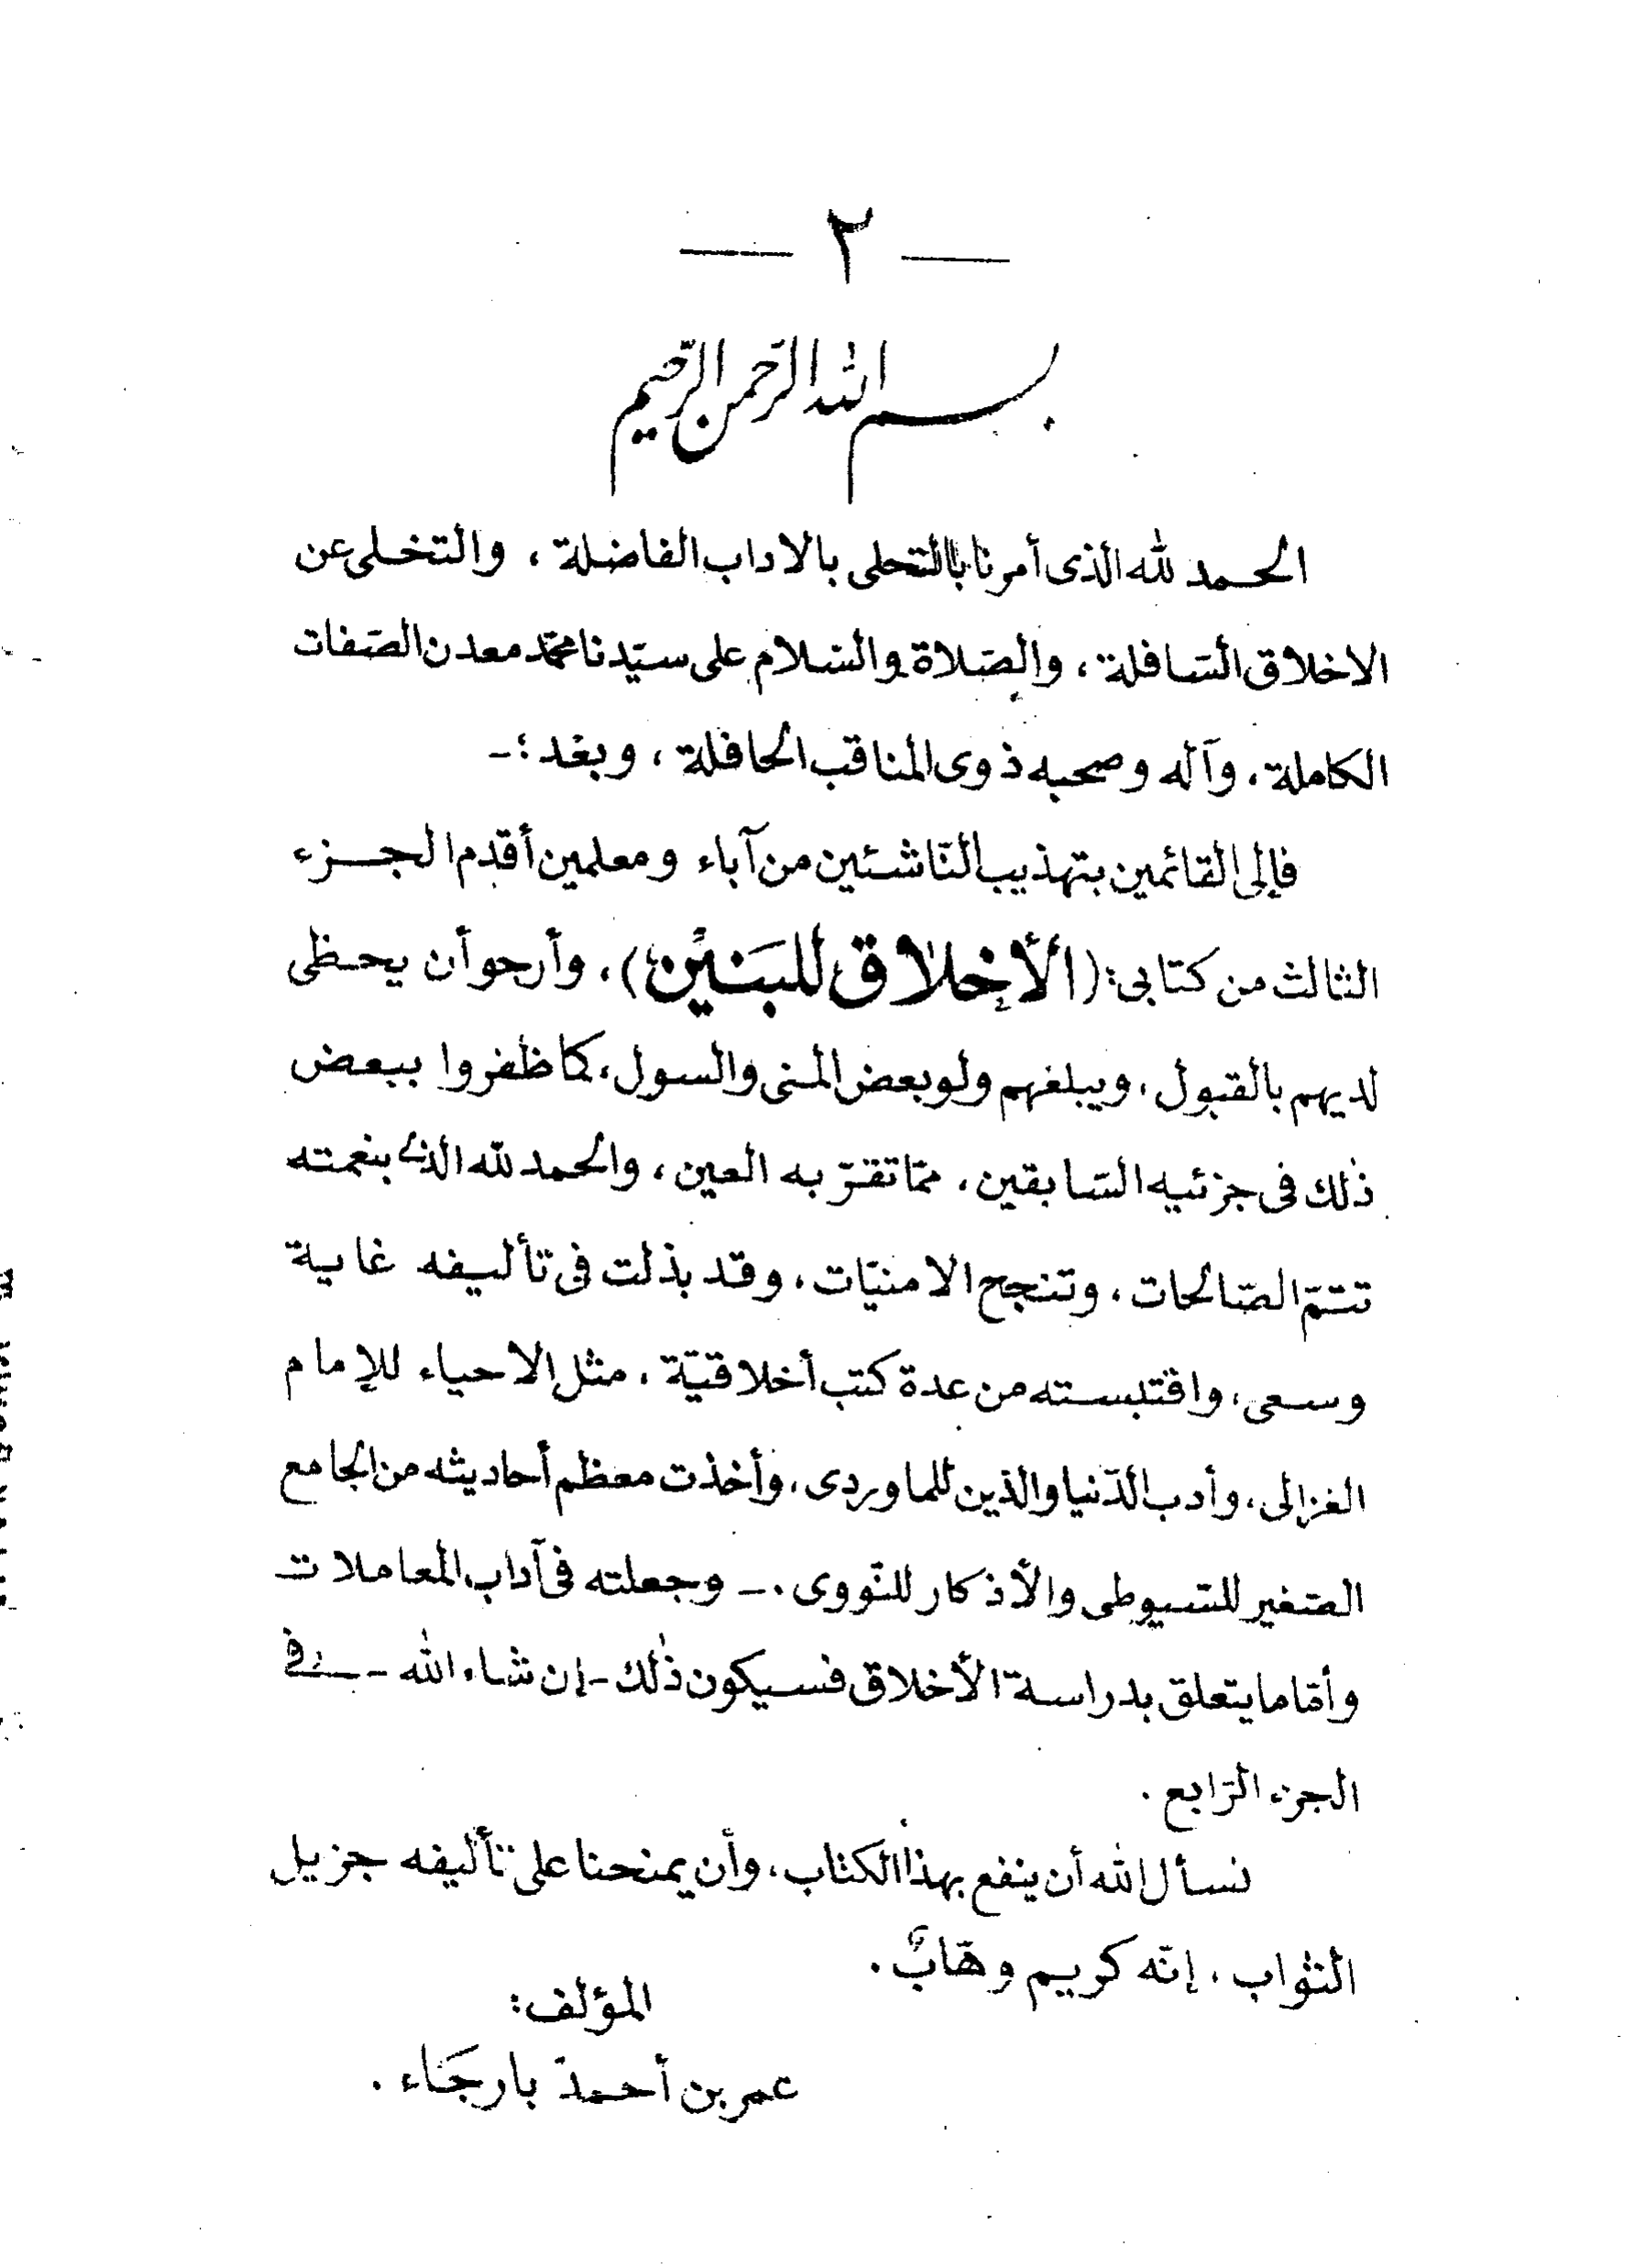 — ٢ —
بسم الله الرحمن الرحيم
الحمد لله الذى أمرنا بالتحلى بالاداب الفاضلة ، والتخلى عن
الاخلاق السّافلة ، والصّلاة والسّلام على سيّدنا محمّد معدن الصّفات
الكاملة ، وآله وصحبه ذوى المناقب الحافلة ، وبعْد :-
فإلى القائمين بتهذيب النّاشئين من آباء ومعلمين أقدم الجزء
الثالث من كتابى : (الْأَخْلَاق للبَنِيْن) ، وأرجو أن يحظى
لديهم بالقبول ، ويبلغهم ولو بعض المنى والسول ، كما ظفروا ببعض
ذٰلك فى جزئيه السّابقين ، ممّا تقرّ به العين ، والحمد لله الذى بنعمته
تتمّ الصّالحات ، وتنجح الامنيّات ، وقد بذلت فى تأليفه غاية
وسعى ، واقتبسته من عدة كتب أخلاقيّة ، مثل الاحياء للإمام
الغزالى ، وأدب الدّنيا والدّين للماوردى ، وأخذت معظم أحاديثه من الجامع
الصّغير للسّيوطى والأذكار للنّووى . - وجعلته فى آداب المعاملات
وأمّا ما يتعلق بدراسة الأخلاق فسيكون ذٰلك - إن شاء الله - فى
الجزء الرّابع .
نسأل الله أن ينفع بهذا الكتاب ، وأن يمنحنا على تأليفه جزيل
الثواب ، إنّه كريم وهّابٌ .
المؤلف :
عمر بن أحمد بارجَاء .